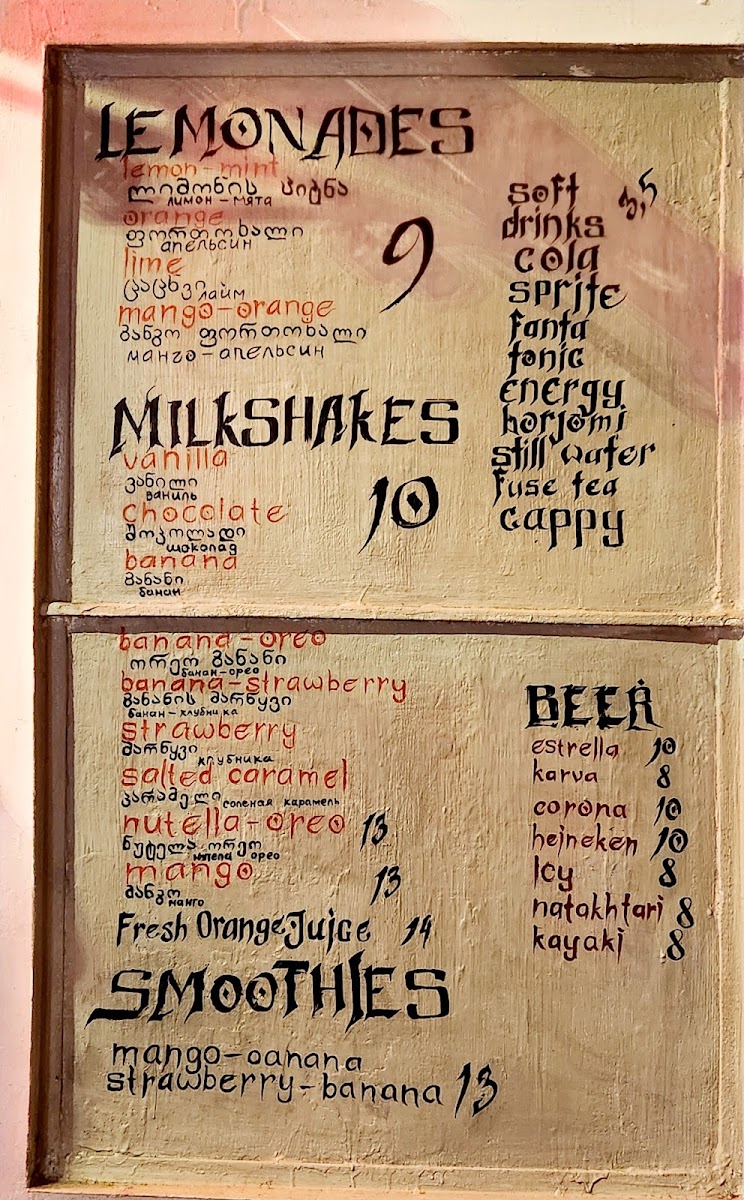 LEMONADES
lemon-mint
ლიმონის პიტნა
лимон-мята
orange
ფორთოხალი
апельсин
lime
ცაცხვი
лайм
mango-orange
მანგო ფორთოხალი
манго-апельсин
9
MILKSHAKES
vanilla
ვანილი
ваниль
chocolate
შოკოლადი
шоколад
banana
ბანანი
банан
10
banana-oreo
ორეო ბანანი
банан-орео
banana-strawberry
ბანანის მარწყვი
банан-клубника
strawberry
მარწყვი
клубника
salted caramel
კარამელი
соленая карамель
nutella-oreo 13
ნუტელა ორეო
нутела орео
mango 13
მანგო
манго
Fresh Orange Juice 14
SMOOTHIES
mango-banana
strawberry-banana 13
soft
drinks
cola
sprite
fanta
tonic
energy
borjomi
still water
fuse tea
cappy
BEER
estrella 10
karva 8
corona 10
heineken 10
Icy 8
natakhtari 8
kayaki 8